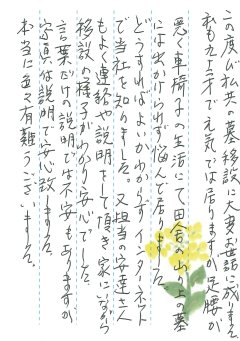 この度び私共の墓移設に大変お世話に成りました。
私も九十三才で元気では居りますが足腰が
悪く車椅子の生活にて田舎の山の上の墓
には出かけられず悩んで居りました。
どうすればよいかわからずインターネット
で当社を知りました。又担当の安達さん
もよく連絡や説明をして頂き家にいながら
移設の様子がわかり安心でした。
言葉だけの説明では不安もありますが
写真は説明で安心致しました。
本当に色々有難うございました。